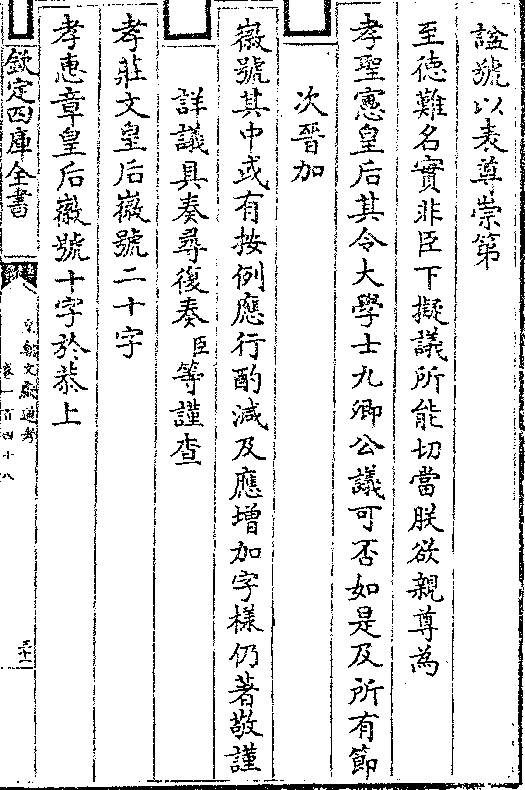 諡號以表尊崇第
至徳難名實非臣下擬議所能切當朕欲親尊為
孝聖憲皇后其令大學士九卿公議可否如是及所有節
次晉加
嶶號其中或有按例應行酌減及應增加字様仍著敬謹
詳議具奏尋復奏臣等謹查
孝莊文皇后嶶號二十字
孝惠章皇后嶶號十字於恭上
欽定四庫全書
皇朝文獻通考
卷一百四十八